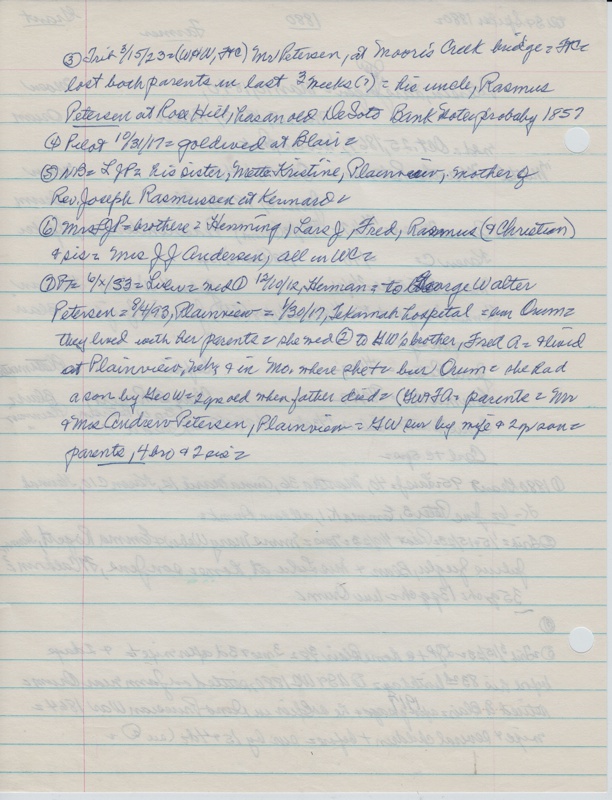 ③ Trib 3/15/23 = (W&W, FC) Mr Petersen, at Moore's Creek bridge = FC =
lost both parents in last 3 weeks (?) = his uncle, Rasmus
Petersen at Rose Hill, has an old DeSoto Bank Note, probably 1857
④ Pilot 10/31/17 = gold wed at Blair =
⑤ NB = LJP = his sister, Mette Kristine, Plainview, mother of
Rev. Joseph Rasmussen at Kennard =
⑥ Mrs LJP = brothers = Henning, Lars J, Fred, Rasmus (& Christian)
& sis = Mrs J J Andersen, all in WC =
⑦ PT = 6/x/33 = = med ① 12/10/12, Herman = to George Walter
Petersen = 8/4/93, Plainview = 1/30/17, Tekamah hospital = Orum =
they lived with her parents = she med ② to GW's brother, Fred A = & lived
at Plainview, Neb, & in Mo. where she + = bur Orum = she had
a son by Geo W = 2 yrs old when father died = (GW & FA = parents = Mr
& Mrs Andrew Petersen, Plainview = GW sur by wife & 2 yr son =
parents, 4 bro & 2 sis =